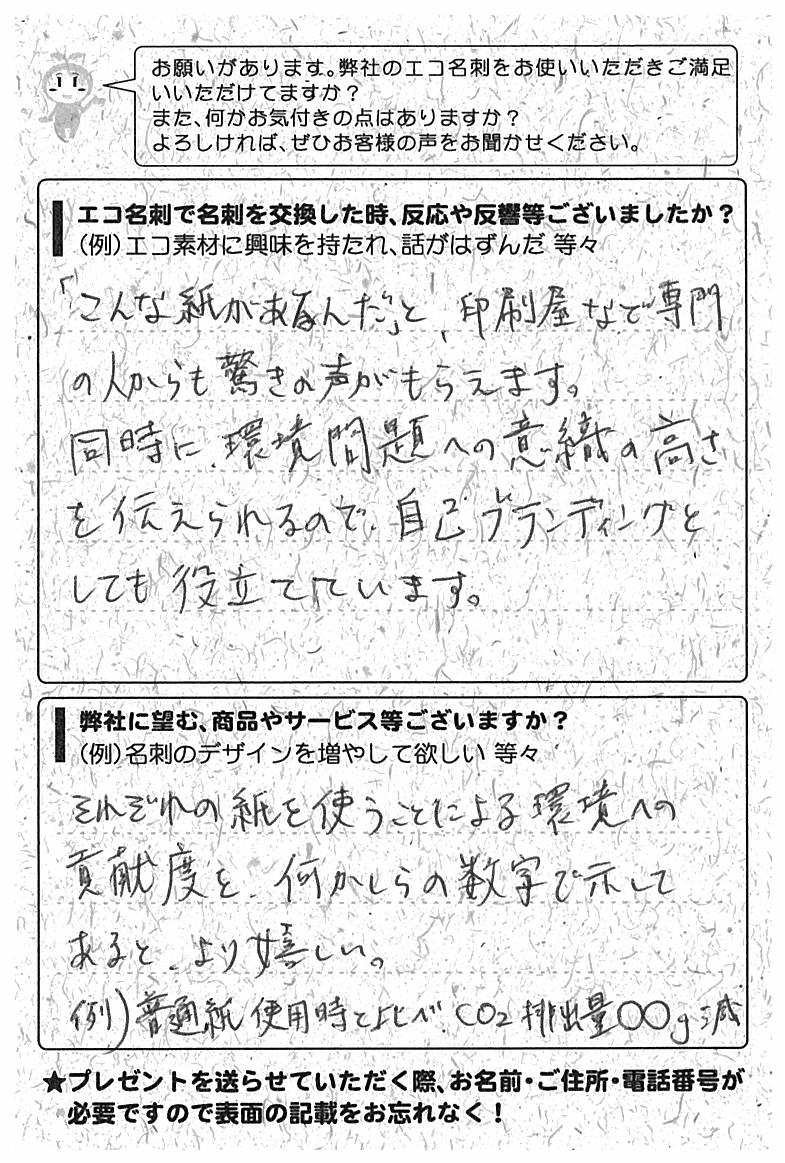 お願いがあります。弊社のエコ名刺をお使いいただきご満足
いいただけてますか？
また、何かお気付きの点はありますか？
よろしければ、ぜひお客様の声をお聞かせください。
エコ名刺で名刺を交換した時、反応や反響等ございましたか？
（例）エコ素材に興味を持たれ、話がはずんだ 等々
「こんな紙があるんだ」と、印刷屋など専門
の人からも驚きの声がもらえます。
同時に、環境問題への意識の高さ
を伝えられるので、自己ブランディングと
しても役立てています。
弊社に望む、商品やサービス等ございますか？
（例）名刺のデザインを増やして欲しい 等々
それぞれの紙を使うことによる環境への
貢献度を、何かしらの数字で示して
あると、より嬉しい。
例）普通紙使用時と比べ CO2排出量〇〇g減
★プレゼントを送らせていただく際、お名前・ご住所・電話番号が
必要ですので表面の記載をお忘れなく！